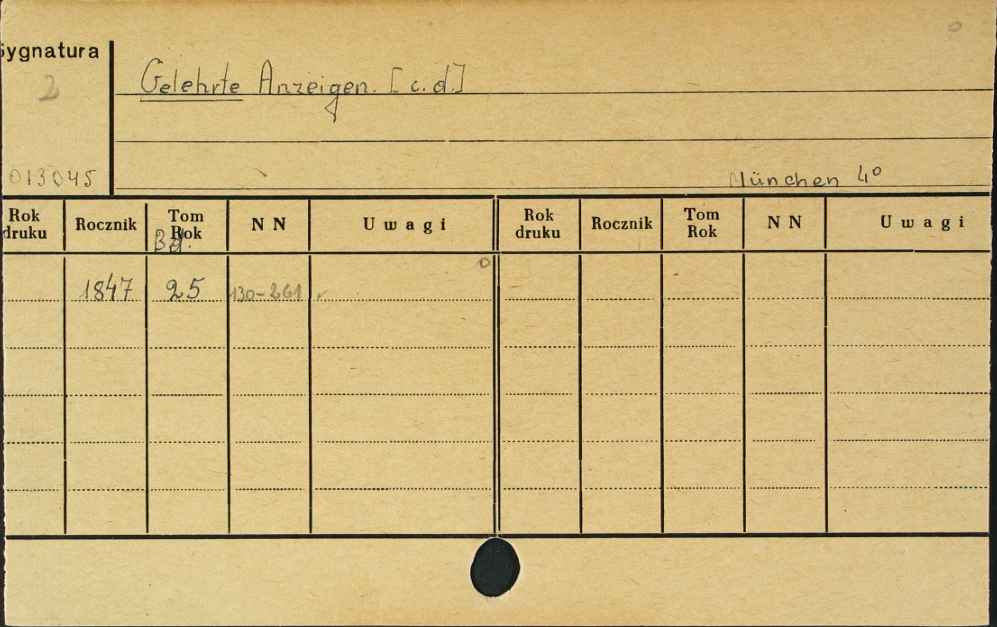 Sygnatura
2
Gelehrte Anzeigen. [c.d.]
013045
München 4°
Rok druku Rocznik Tom Rok NN Uwagi Rok druku Rocznik Tom Rok NN Uwagi
Bd.
1847 25 130-261